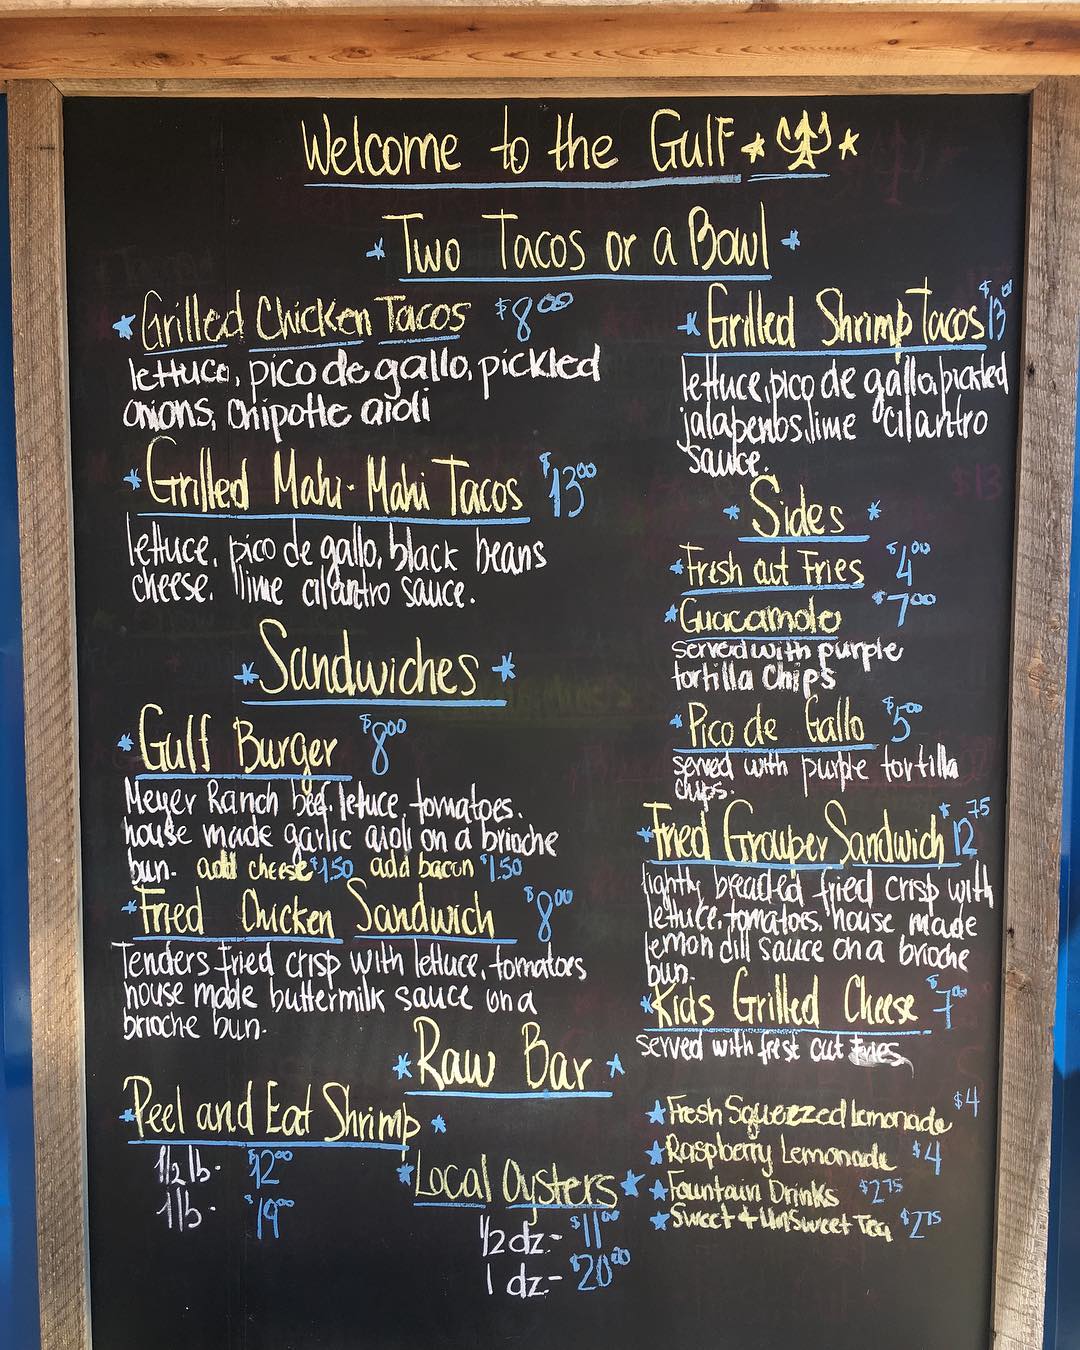 Welcome to the Gulf
Two Tacos or a Bowl
Grilled Chicken Tacos $8.00
lettuce, pico de gallo, pickled
onions, chipotle aioli
Grilled Mahi-Mahi Tacos $13.00
lettuce, pico de gallo, black beans
cheese, lime cilantro sauce.
Grilled Shrimp Tacos $13.00
lettuce, pico de gallo, pickled
jalapenos, lime cilantro
sauce.
Sandwiches
Gulf Burger $8.00
Meyer Ranch beef, lettuce, tomatoes,
house made garlic aioli on a brioche
bun. add cheese $1.50 add bacon $1.50
Fried Chicken Sandwich $8.00
Tenders fried crisp with lettuce, tomatoes
house made buttermilk sauce on a
brioche bun.
Sides
Fresh cut Fries $4.00
Guacamole $7.00
served with purple
tortilla chips
Pico de Gallo $5.00
served with purple tortilla
chips.
Fried Grouper Sandwich $12.75
lightly breaded fried crisp with
lettuce, tomatoes, house made
lemon dill sauce on a brioche
bun.
Kids Grilled Cheese $7.00
served with fresh cut fries
Raw Bar
Peel and Eat Shrimp
1/2 lb- $12.00
1 lb- $19.00
Local Oysters
1/2 dz.- $11.00
1 dz- $20.00
Fresh Squeezed Lemonade $4
Raspberry Lemonade $4
Fountain Drinks $2.75
Sweet + UnSweet Tea $2.75